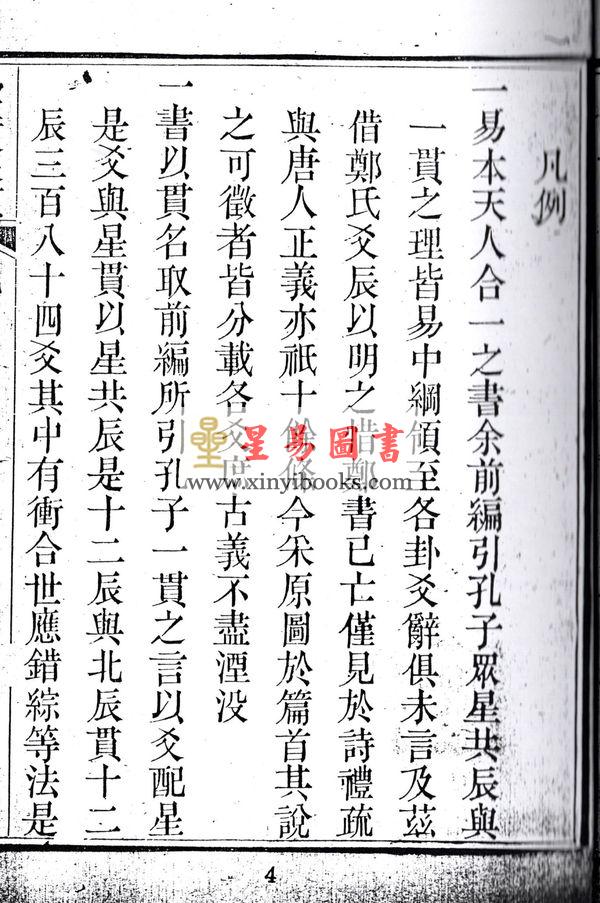 凡例
一易本天人合一之書余前編引孔子眾星共辰與
一貫之理皆易中綱領至各卦爻辭俱未言及茲
借鄭氏爻辰以明之惜鄭書已亡僅見於詩禮疏
與唐人正義亦祇十餘條今采原圖於篇首其說
之可徵者皆分載各爻庶古義不盡湮没
一書以貫名取前編所引孔子一貫之言以爻配星
是爻與星貫以星共辰是十二辰與北辰貫十二
辰三百八十四爻其中有衝合世應錯綜等法是
星易圖書
www.xinyibooks.com
4